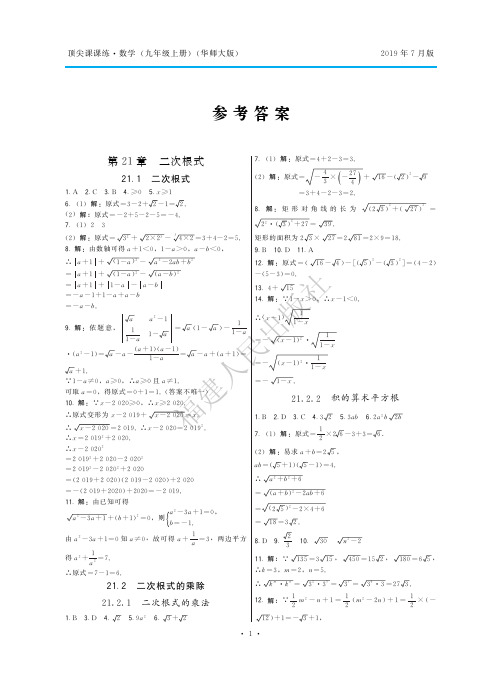 顶尖课课练·数学(九年级上册)(华师大版)
2019年7月版
参考答案
第21章 二次根式
21.1 二次根式
1. A 2. C 3. B 4. ≥0 5. x≥1
6. (1) 解:原式=3-2+√2-1=√2.
(2) 解:原式=-2+5-2-5=-4.
7. (1) 2 3
(2) 解:原式=√3²+√2×2²-√4×2=3+4-2=5.
8. 解:由数轴可得 a+1<0, 1-a>0, a-b<0,
∴|a+1|+√(1-a)²-√a²-2ab+b²
=|a+1|+√(1-a)²-√(a-b)²
=|a+1|+|1-a|-|a-b|
=-a-1+1-a+a-b
=-a-b.
9. 解:依题意,
|√a a²-1|
|1/(1-a) 1-√a|
=√a(1-√a)-1/(1-a)
·(a²-1)=√a-a-(a+1)(a-1)/(1-a)=√a-a+(a+1)=
√a+1.
∵1-a≠0, a≥0, ∴a≥0 且 a≠1.
可取 a=0, 得原式=0+1=1. (答案不唯一)
10. 解:∵x-2 020≥0, ∴x≥2 020,
∴原式变形为 x-2 019+√x-2 020=x,
∴√x-2 020=2 019, ∴x-2 020=2 019²,
∴x=2 019²+2 020,
∴x-2 020²
=2 019²+2 020-2 020²
=2 019²-2 020²+2 020
=(2 019+2 020)(2 019-2 020)+2 020
=-(2 019+2020)+2020=-2 019.
11. 解:由已知可得
√a²-3a+1+(b+1)²=0, 则{a²-3a+1=0, b=-1.
由 a²-3a+1=0 知 a≠0, 故可得 a+1/a=3, 两边平方
得 a²+1/a²=7,
∴原式=7-1=6.
21.2 二次根式的乘除
21.2.1 二次根式的乘法
1. B 3. D 4. √2 5. 9a² 6. √3+√2
7. (1) 解:原式=4+2-3=3.
(2) 解:原式=√-4/3×(-27/4)+√16-(√2)²-√9
=3+4-2-3=2.
8. 解:矩形对角线的长为 √(2√3)²+(√27)²=
√2²·(√3)²+27=√39.
矩形的面积为 2√3×√27=2√81=2×9=18.
9. B 10. D 11. A
12. 解:原式=(√16-√4)-[(√5)²-(√5)²]=(4-2)
-(5-3)=0.
13. 4+√15
14. 解:∵1-x>0, ∴x-1<0,
∴(x-1)√1/(1-x)
=-√(x-1)²·√1/(1-x)
=-√(x-1)²·1/(1-x)
=-√1-x.
21.2.2 积的算术平方根
1. B 2. D 3. C 4. 3√2 5. 3ab 6. 2a²b√2b
7. (1) 解:原式=1/2×2√6-3+3=√6.
(2) 解:易求 a+b=2√5,
ab=(√5+1)(√5-1)=4,
∴√a²+b²+6
=√(a+b)²-2ab+6
=√(2√5)²-2×4+6
=√18=3√2.
8. D 9. √2/3 10. √30 √n²-2
11. 解:∵√135=3√15, √450=15√2, √180=6√5,
∴k=3, m=2, n=5,
12. 解:∵1/2m²-n+1=1/2(m²-2n)+1=1/2×(-
√12)+1=-√3+1,
福建人民出版社
· 1 ·